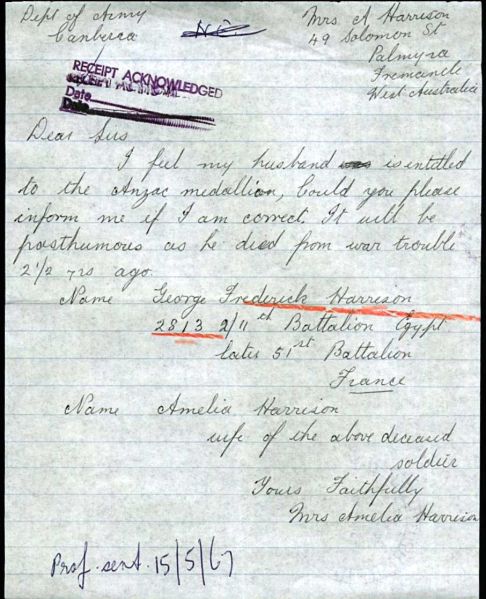 Dept of Army
Canberra
Mrs A Harrison
49 Solomon St
Palmyra
Fremantle
West Australia
RECEIPT ACKNOWLEDGED
Date
Dear Sirs
I feel my husband is entitled
to the Anzac medallion, Could you please
inform me if I am correct. It will be
posthumous as he died from war trouble
2 1/2 yrs ago.
Name George Frederick Harrison
2813 2/11th Battalion Egypt
later 51st Battalion
France
Name Amelia Harrison
wife of the above deceased
soldier
Yours Faithfully
Mrs Amelia Harrison
sent. 15/5/67